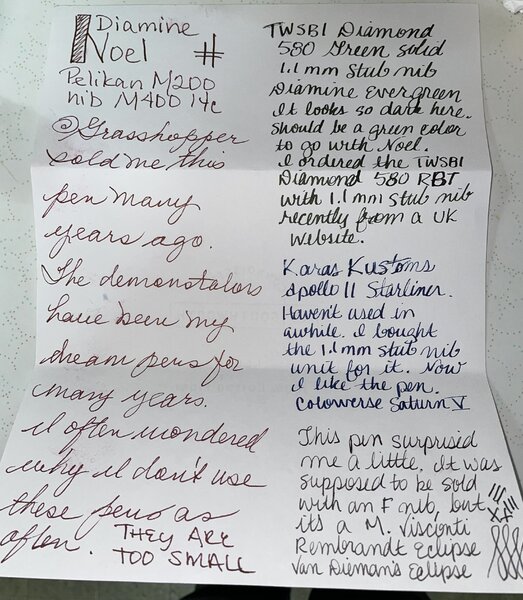 Diamine
Noel #
Pelikan M200
nib M400 14c
@Grasshopper
sold me this
pen many
years ago.
The demonstators
have been my
dream pens for
many years.
I often wondered
why I don't use
these pens as
often. THEY ARE
TOO SMALL
TWSBI Diamond
580 Green solid
1.1 mm Stub nib
Diamine Evergreen
It looks so dark here.
Should be a green color
to go with Noel.
I ordered the TWSBI
Diamond 580 RBT
with 1.1 mm stub nib
recently from a UK
website.
Karas Kustoms
Apollo 11 Starliner.
Haven't used in
awhile. I bought
the 1.1 mm stub nib
unit for it. Now
I like the pen.
Colorverse Saturn V
This pen surprised
me a little. It was
supposed to be sold
with an F nib, but
it's a M. Visconti
Rembrandt Eclipse
Van Dieman's Eclipse